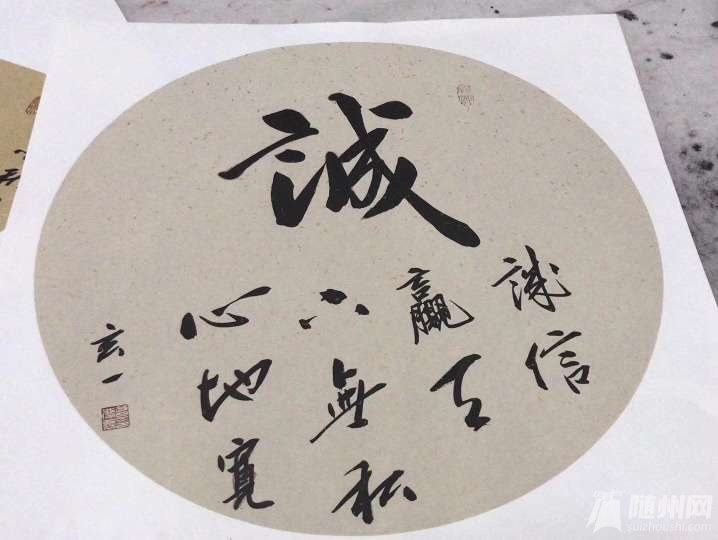 誠
誠信
贏天
下無私
心地寬
玄一
随州网
suizhoushi.com